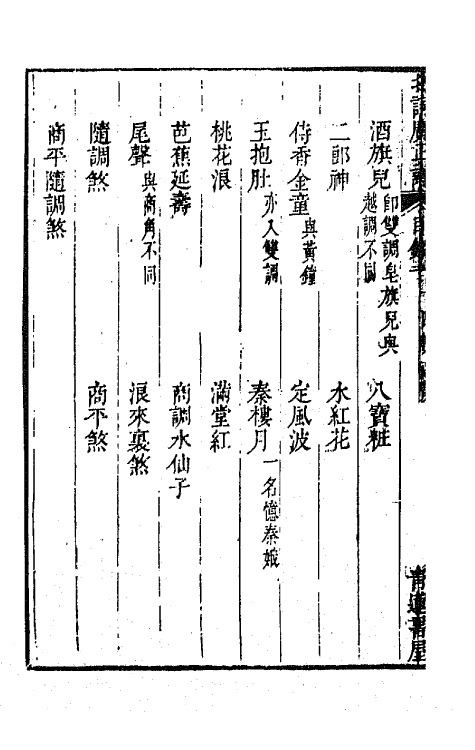 酒旗兒 即雙調皂旗兒與越調不同 八寶粧
二郎神 水紅花
侍香金童 與黃鐘 定風波
玉抱肚 亦入雙調 秦樓月 一名憶秦娥
桃花浪 滿堂紅
芭蕉延壽 商調水仙子
尾聲 與商角不同 浪來裏煞
隨調煞 商平煞
商平隨調煞
青蓮書屋